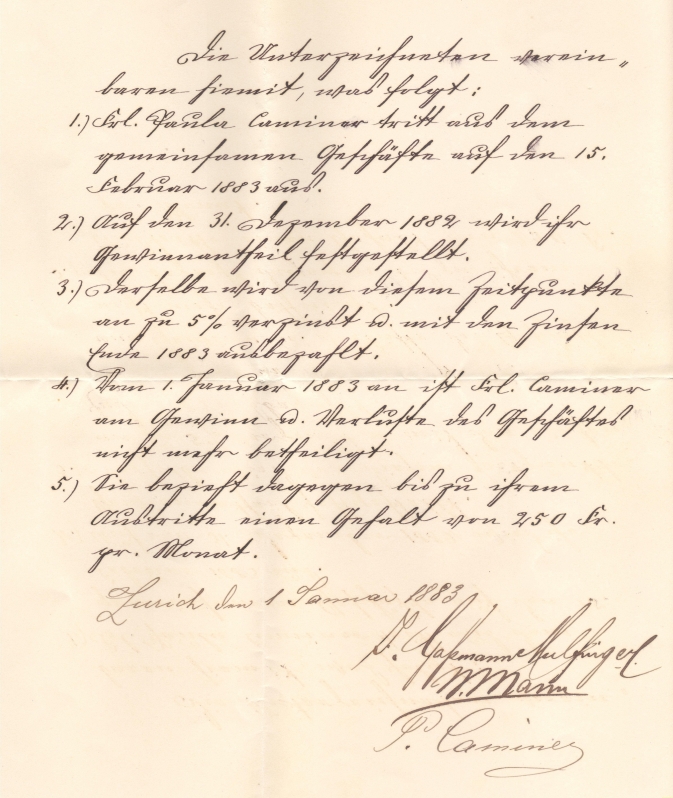 Die Unterzeichneten verein„
baren hiemit, was folgt:
1.) Frl. Paula Caminer tritt aus dem
gemeinsamen Geschäfte auf den 15.
Februar 1883 aus.
2.) Auf den 31. Dezember 1882 wird ihr
Gewinnantheil festgestellt.
3.) Derselbe wird von diesem Zeitpunkte
an zu 5% verzinst u. mit den Zinsen
Ende 1883 ausbezahlt.
4.) Vom 1. Januar 1883 an ist Frl. Caminer
am Gewinn u. Verluste des Geschäftes
nicht mehr betheiligt.
5.) Sie bezieht dagegen bis zu ihrem
Austritte einen Gehalt von 250 Fr.
pr. Monat.
Zürich den 1 Januar 1883
P. Caminer